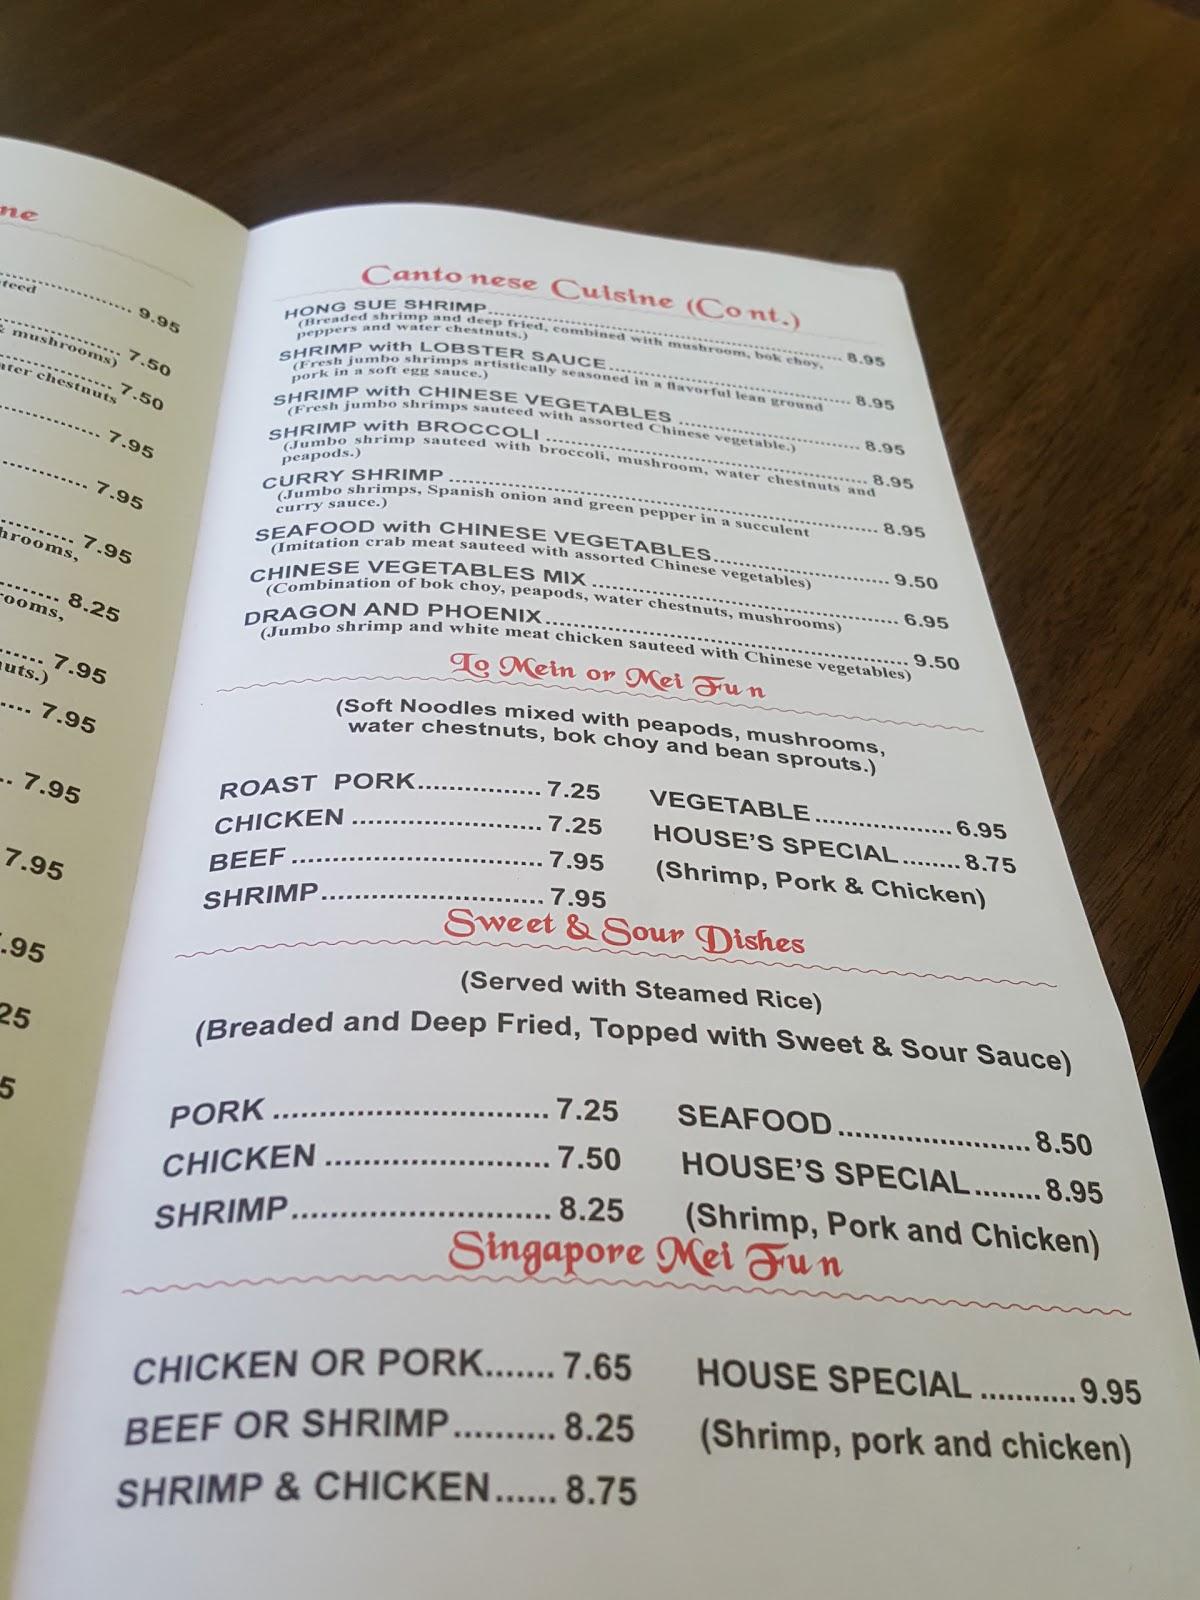 ne
teed
9.95
& mushrooms) 7.50
7.50
ater chestnuts
7.95
7.95
7.95
hrooms,
8.25
ooms,
7.95
uts.)
7.95
7.95
7.95
.95
25
5
Cantonese Cuisine (Cont.)
HONG SUE SHRIMP 8.95
(Breaded shrimp and deep fried, combined with mushroom, bok choy,
peppers and water chestnuts.)
SHRIMP with LOBSTER SAUCE 8.95
(Fresh jumbo shrimps artistically seasoned in a flavorful lean ground
pork in a soft egg sauce.)
SHRIMP with CHINESE VEGETABLES 8.95
(Fresh jumbo shrimps sauteed with assorted Chinese vegetable.)
SHRIMP with BROCCOLI 8.95
(Jumbo shrimp sauteed with broccoli, mushroom, water chestnuts and
peapods.)
CURRY SHRIMP 8.95
(Jumbo shrimps, Spanish onion and green pepper in a succulent
curry sauce.)
SEAFOOD with CHINESE VEGETABLES 9.50
(Imitation crab meat sauteed with assorted Chinese vegetables)
CHINESE VEGETABLES MIX 6.95
(Combination of bok choy, peapods, water chestnuts, mushrooms)
DRAGON AND PHOENIX 9.50
(Jumbo shrimp and white meat chicken sauteed with Chinese vegetables)
Lo Mein or Mei Fun
(Soft Noodles mixed with peapods, mushrooms,
water chestnuts, bok choy and bean sprouts.)
ROAST PORK 7.25
CHICKEN 7.25
BEEF 7.95
SHRIMP 7.95
VEGETABLE 6.95
HOUSE'S SPECIAL 8.75
(Shrimp, Pork & Chicken)
Sweet & Sour Dishes
(Served with Steamed Rice)
(Breaded and Deep Fried, Topped with Sweet & Sour Sauce)
PORK 7.25
CHICKEN 7.50
SHRIMP 8.25
SEAFOOD 8.50
HOUSE'S SPECIAL 8.95
(Shrimp, Pork and Chicken)
Singapore Mei Fun
CHICKEN OR PORK 7.65
BEEF OR SHRIMP 8.25
SHRIMP & CHICKEN 8.75
HOUSE SPECIAL 9.95
(Shrimp, pork and chicken)